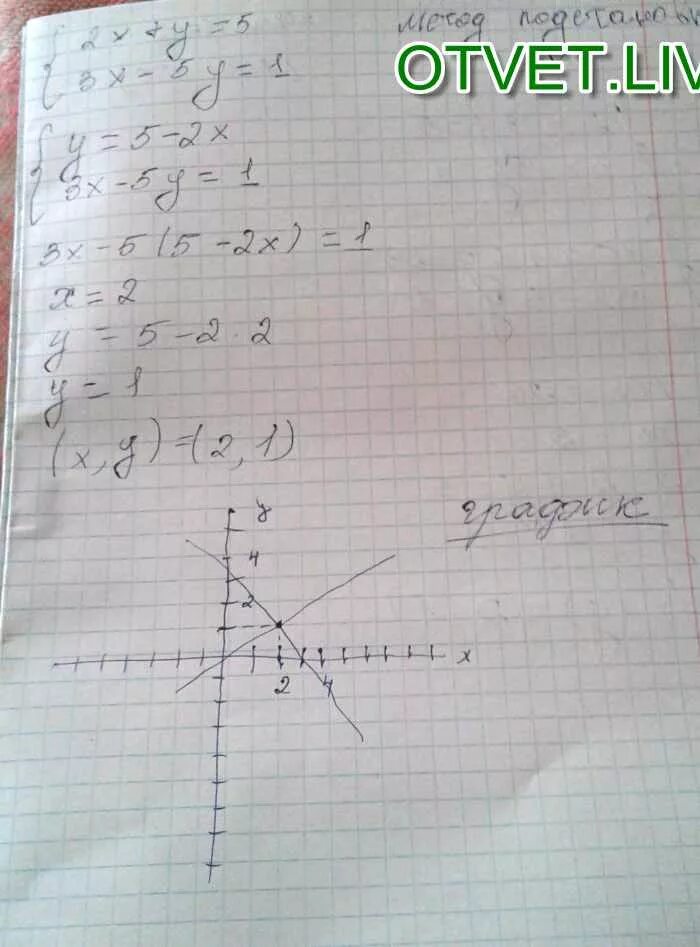 2x + y = 5
Метод подстановк
3x - 5y = 1
OTVET.LIV
y = 5 - 2x
3x - 5y = 1
3x - 5(5 - 2x) = 1
x = 2
y = 5 - 2 · 2
y = 1
(x, y) = (2, 1)
график
y
4
2
x
2
4